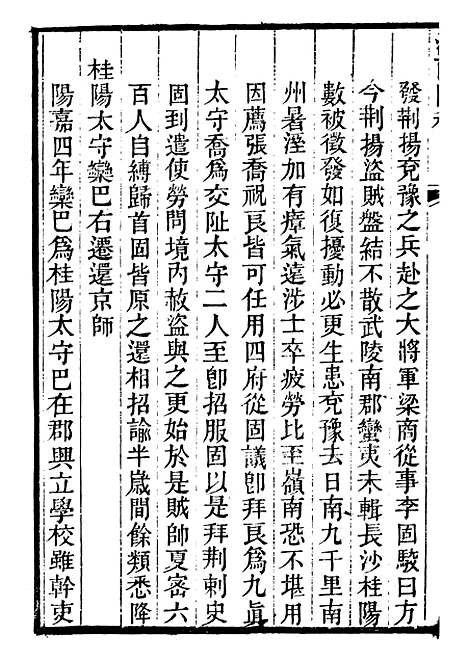 發荆揚兗豫之兵赴之大將軍梁商從事李固駮曰方
今荆揚盜賊盤結不散武陵南郡蠻夷未輯長沙桂陽
數被徵發如復擾動必更生患兗豫去日南九千里南
州暑溼加有瘴氣遠涉士卒疲勞比至嶺南恐不堪用
因薦張喬祝良皆可任用四府從固議卽拜良爲九眞
太守喬爲交阯太守二人至卽招服固以是拜荆刺史
固到遣使勞問境內赦盜與之更始於是賊帥夏密六
百人自縛歸首固皆原之還相招諭半歲間餘類悉降
桂陽太守欒巴右遷還京師
陽嘉四年欒巴爲桂陽太守巴在郡興立學校雖幹吏